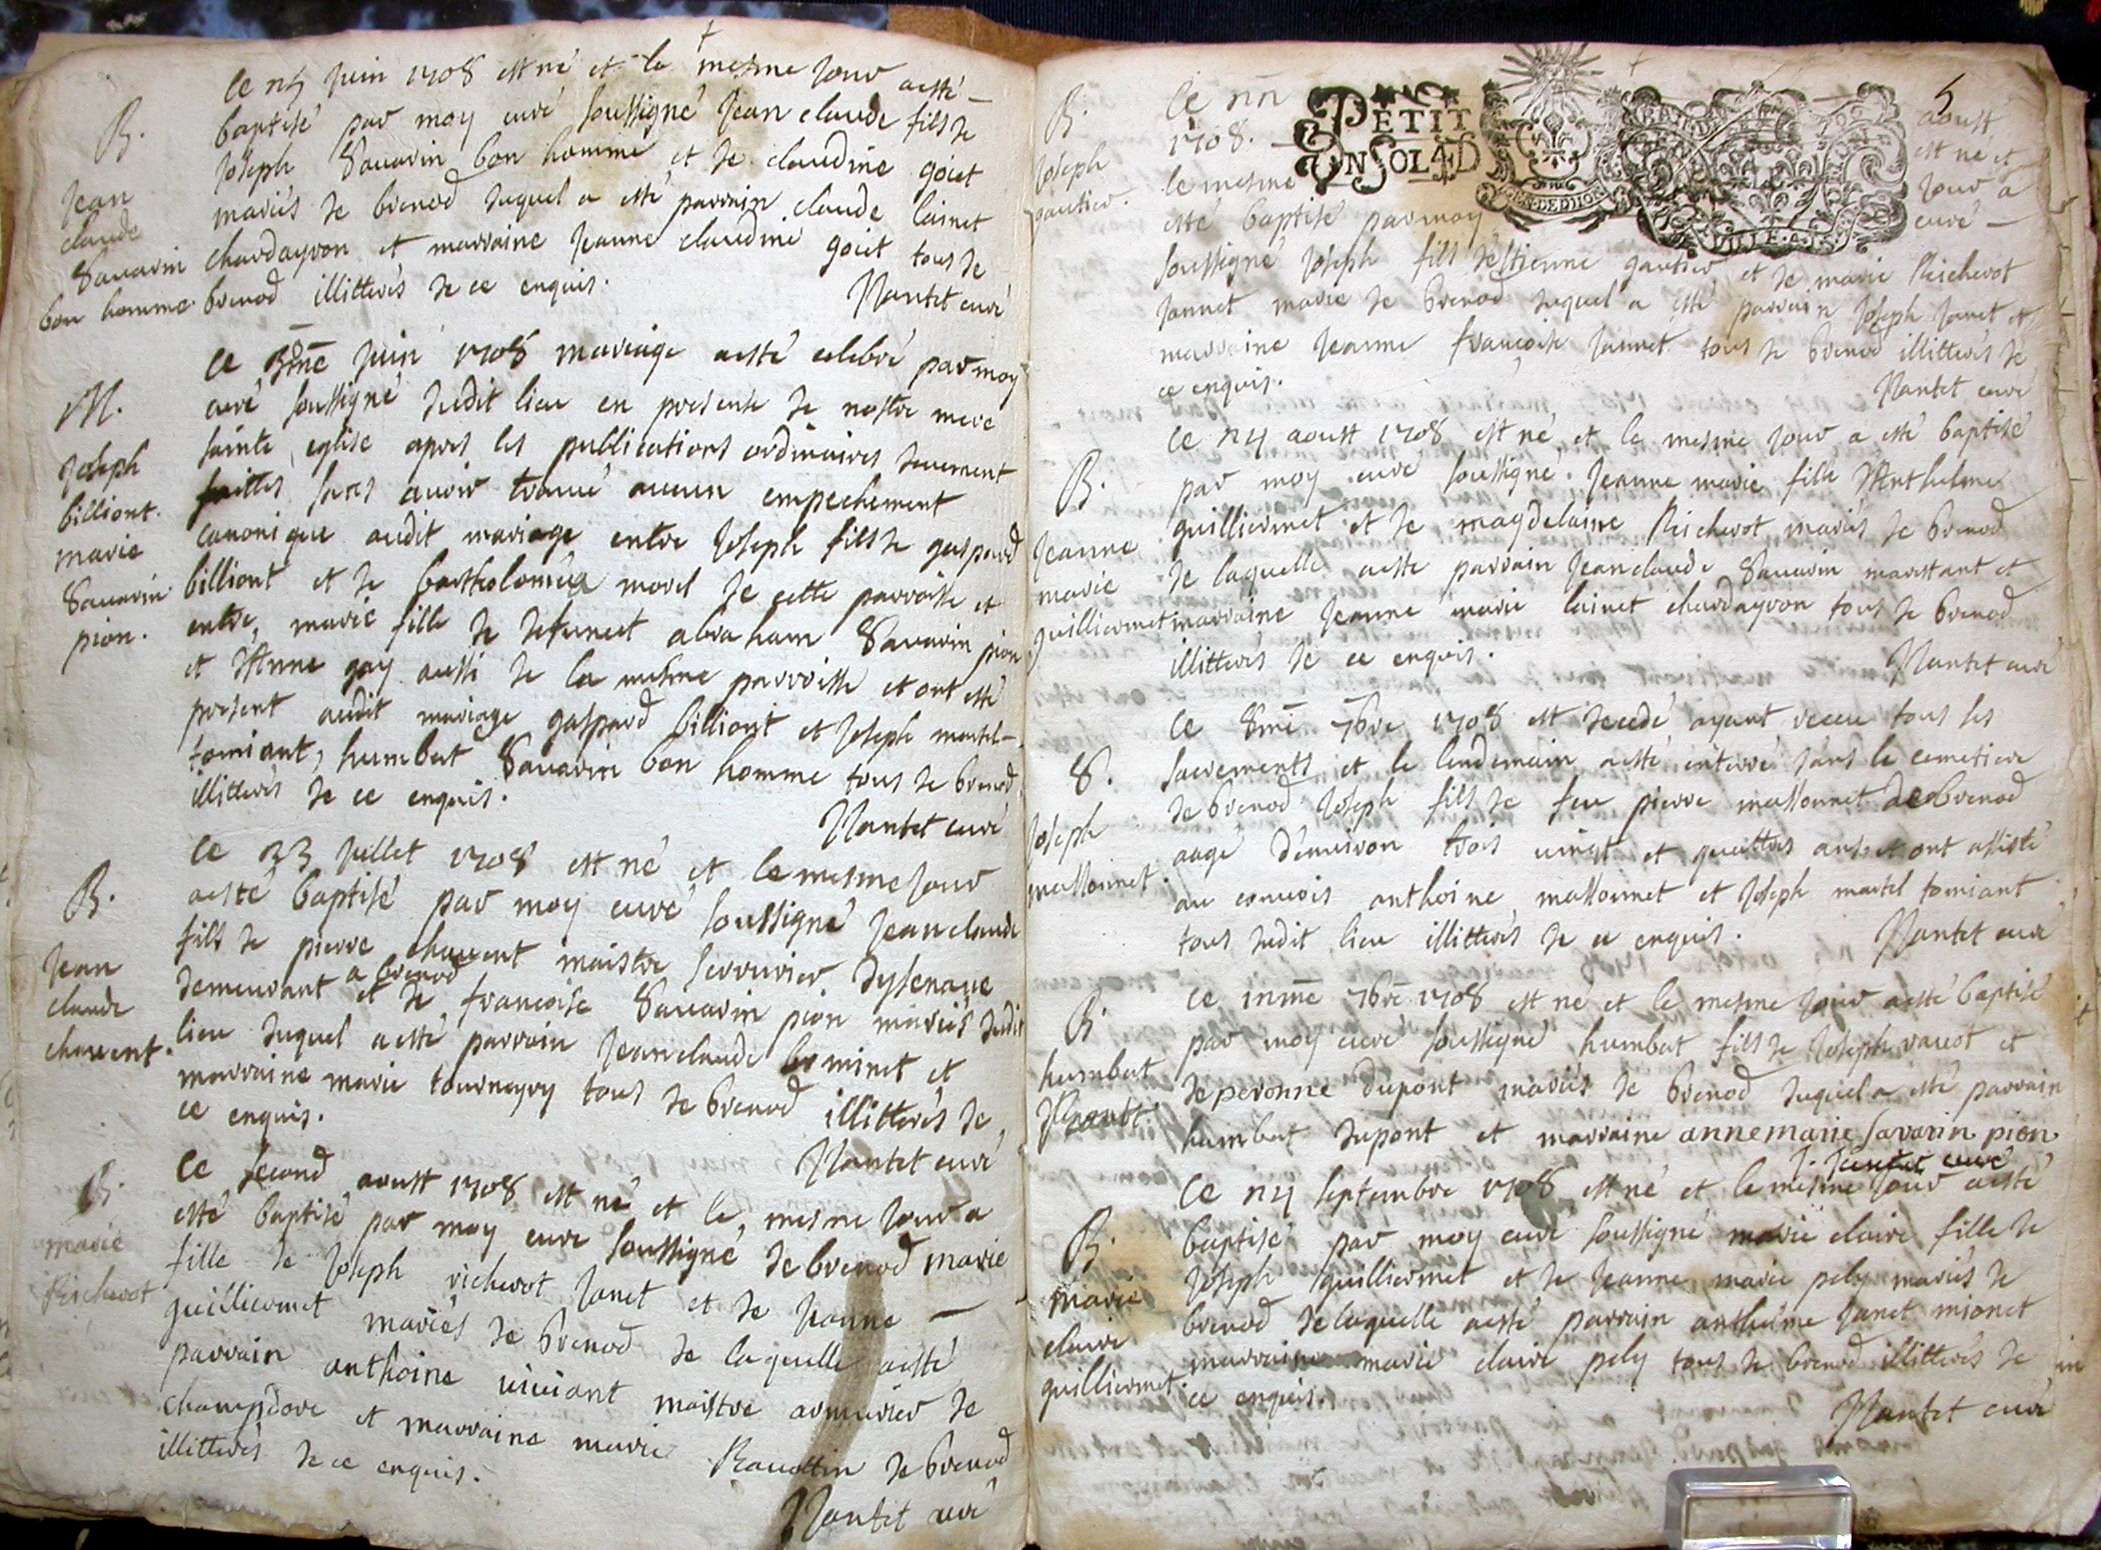 B.
Jean
claude
Sauarin
bon homme
Ce 25 Juin 1708 est né et le mesme Jour a esté
baptisé par moy curé soussigné Jean claude fils de
Joseph Sauarin bon homme et de claudine goiet
mariés de brenod duquel a esté parrain claude lainet
chardayron et marraine Jeanne claudine goiet tous de
brenod illitterés de ce enquis.
Nantet curé
M.
Joseph
billiont.
marie
Sauarin
pion.
Ce Juin 1708 mariage a esté celebré par moy
curé soussigné dudit lieu en presence de nostre mere
sainte eglise apres les publications ordinaires deuement
faittes sans auoir trouué aucun empechement
canonique audit mariage entre Joseph fils de gaspard
billiont et de bartholomea morel de cette parroisse et
entre marie fille de defunct abraham Sauarin pion
et d'Anne gay aussi de la mesme parroisse et ont esté
present audit mariage gaspard billiont et Joseph martel
tomiant, humbert Sauarin bon homme tous de brenod
illitterés de ce enquis.
Nantet curé
B.
Jean
claude
chauent.
Ce 23 Juillet 1708 est né et le mesme Jour
a esté baptisé par moy curé soussigné Jean claude
fils de pierre chauent maistre serrurier dysenaue
demeurant a brenod et de francoise Sauarin pion mariés dudit
lieu duquel a esté parrain Jean claude bominet et
marraine marie tourneyry tous de brenod illitterés de
ce enquis.
Nantet curé
B.
marie
Richerot
Ce second aoust 1708 est né et le mesme Jour a
esté baptisé par moy curé soussigné de brenod marie
fille de Joseph richerot Janet et de Jeanne
guilliermet mariés de brenod de laquelle a esté
parrain anthoine viuiant maistre armurier de
champdore et marraine marie Rauottin de brenod
illitterés de ce enquis.
Nantet curé
5
B.
Joseph
gautier.
PETIT
UN SOL 4 D
VILLE
Ce 22 aoust
1708. est né et
le mesme Jour a
esté baptisé par moy curé
soussigné Joseph fils d'estienne gautier et de marie Richerot
Jannet mariés de brenod duquel a esté parrain Joseph Janet et
marraine Jeanne francoise Jannet tous de brenod illitterés de
ce enquis.
Nantet curé
B.
Jeanne
marie
guilliermet
Ce 24 aoust 1708 est né et le mesme Jour a esté baptisé
par moy curé soussigné Jeanne marie fille d'Anthelme
guilliermet et de maydelaine Richerot mariés de brenod
de laquelle a esté parrain Jean claude Sauarin marettant et
marraine Jeanne marie lainet chardayron tous de brenod
illitterés de ce enquis.
Nantet curé
S.
Joseph
massonnet.
Ce 8me 7bre 1708 est decedé ayant receu tous les
sacrements et le lendemain a esté enterré dans le cemetiere
de brenod Joseph fils de feu pierre massonnet de brenod
aagé d'enuiron trois uingt et quattres ans et ont assisté
au conuois anthoine massonnet et Joseph martel tomiant
tous dudit lieu illitterés de ce enquis.
Nantet curé
B.
humbert
Rauot.
Ce 7bre 1708 est né et le mesme Jour a esté baptisé
par moy curé soussigné humbert fils de Joseph rauot et
de peronne dupont mariés de brenod duquel a esté parrain
humbert dupont et marraine anne marie Savarin pion
J. Nantet curé
B.
marie
claire
guilliermet.
Ce 24 septembre 1708 est né et le mesme Jour a esté
baptisé par moy curé soussigné marie claire fille de
Joseph guilliermet et de Jeanne marie pely mariés de
brenod de laquelle a esté parrain anthelme Janet mionet
marraine marie claire pely tous de brenod illitterés de
ce enquis.
Nantet curé